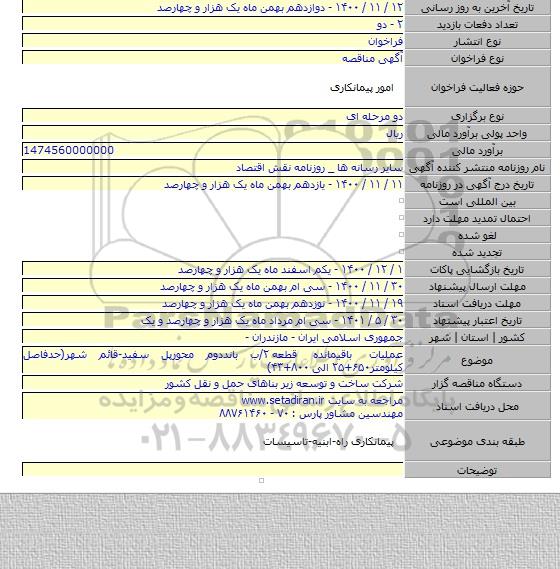 تاریخ آخرین به روز رسانی ۱۲ / ۱۱ / ۱۴۰۰ - دوازدهم بهمن ماه یک هزار و چهارصد
تعداد دفعات بازدید ۲ - دو
نوع انتشار فراخوان
نوع فراخوان آگهی مناقصه
حوزه فعالیت فراخوان امور پیمانکاری
نوع برگزاری دو مرحله ای
واحد پولی برآورد مالی ریال
برآورد مالی 1474560000000
نام روزنامه منتشر کننده آگهی سایر رسانه ها _ روزنامه نقش اقتصاد
تاریخ درج آگهی در روزنامه ۱۱ / ۱۱ / ۱۴۰۰ - یازدهم بهمن ماه یک هزار و چهارصد
بین المللی است
احتمال تمدید مهلت دارد
لغو شده
تجدید شده
تاریخ بازگشایی پاکات ۱ / ۱۲ / ۱۴۰۰ - یکم اسفند ماه یک هزار و چهارصد
مهلت ارسال پیشنهاد ۳۰ / ۱۱ / ۱۴۰۰ - سی ام بهمن ماه یک هزار و چهارصد
مهلت دریافت اسناد ۱۹ / ۱۱ / ۱۴۰۰ - نوزدهم بهمن ماه یک هزار و چهارصد
تاریخ اعتبار پیشنهاد ۳۰ / ۵ / ۱۴۰۱ - سی ام مرداد ماه یک هزار و چهارصد و یک
کشور | استان | شهر جمهوری اسلامی ایران - مازندران -
موضوع عملیات باقیمانده قطعه ۲/ب بانددوم محورپل سفید-قائم شهر(حدفاصل
کیلومتر۶۵۰+۲۵ الی ۸۰۰+۴۳)
دستگاه مناقصه گزار شرکت ساخت و توسعه زیر بناهای حمل و نقل کشور
محل دریافت اسناد مراجعه به سایت www.setadiran.ir
مهندسین مشاور پارس : ۷۰ - ۸۸۷۶۱۴۶۰
طبقه بندی موضوعی پیمانکاری راه-ابنیه-تاسیسات
توضیحات
۰۲۱-۸۸۳۴۹۶۷۰-۵